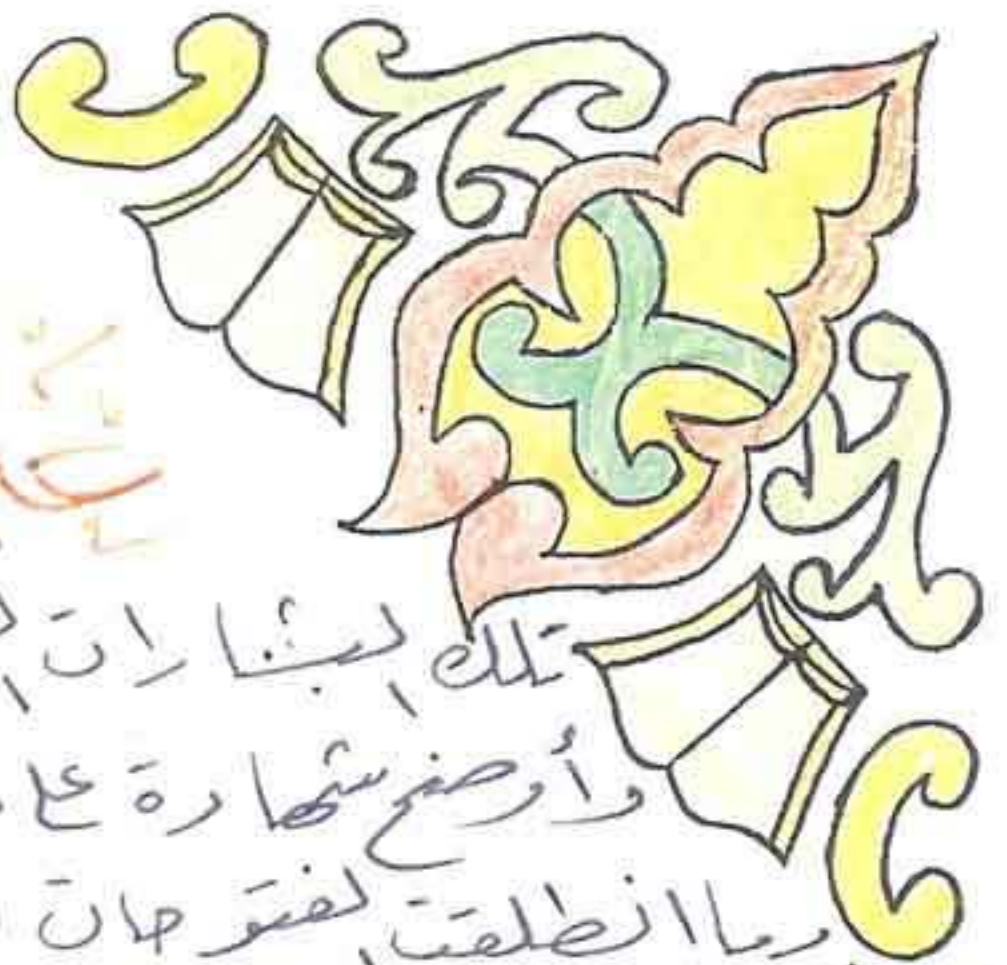 تلك البشارات
وأوضح شهادة على
وما انطلقت الفتوحات